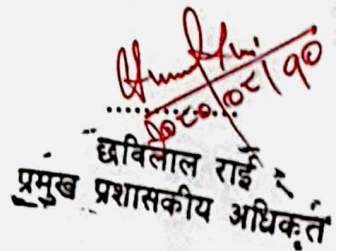 २०८०।०८।१०
छविलाल राई
प्रमुख प्रशासकीय अधिकृत